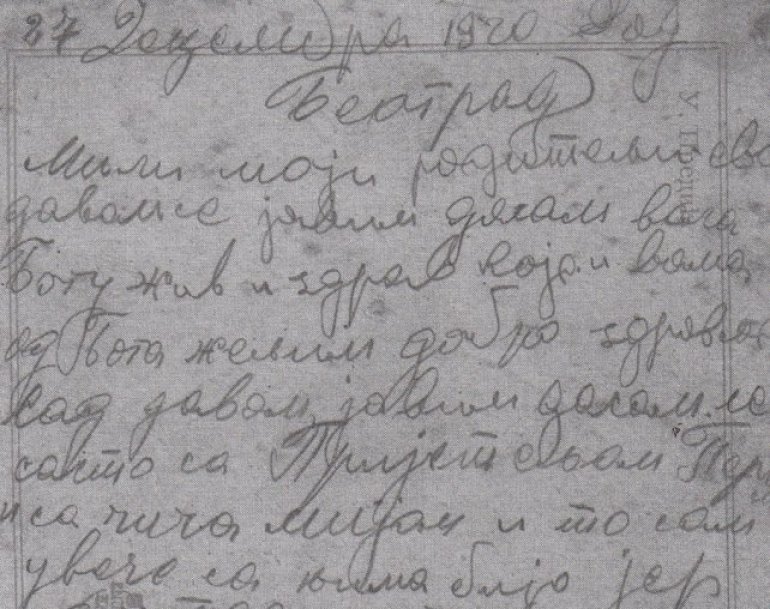 27 Децембра 1920 Год
Београд
Мили моји родитељи ево
давам се јавим да сам вала
Богу жив и здрав која и вама
од Бога желим добро здравље
сад давам јавим да сам се
састо са Пријетељом
и са чича Мијом и то сам
увече са њима био јер